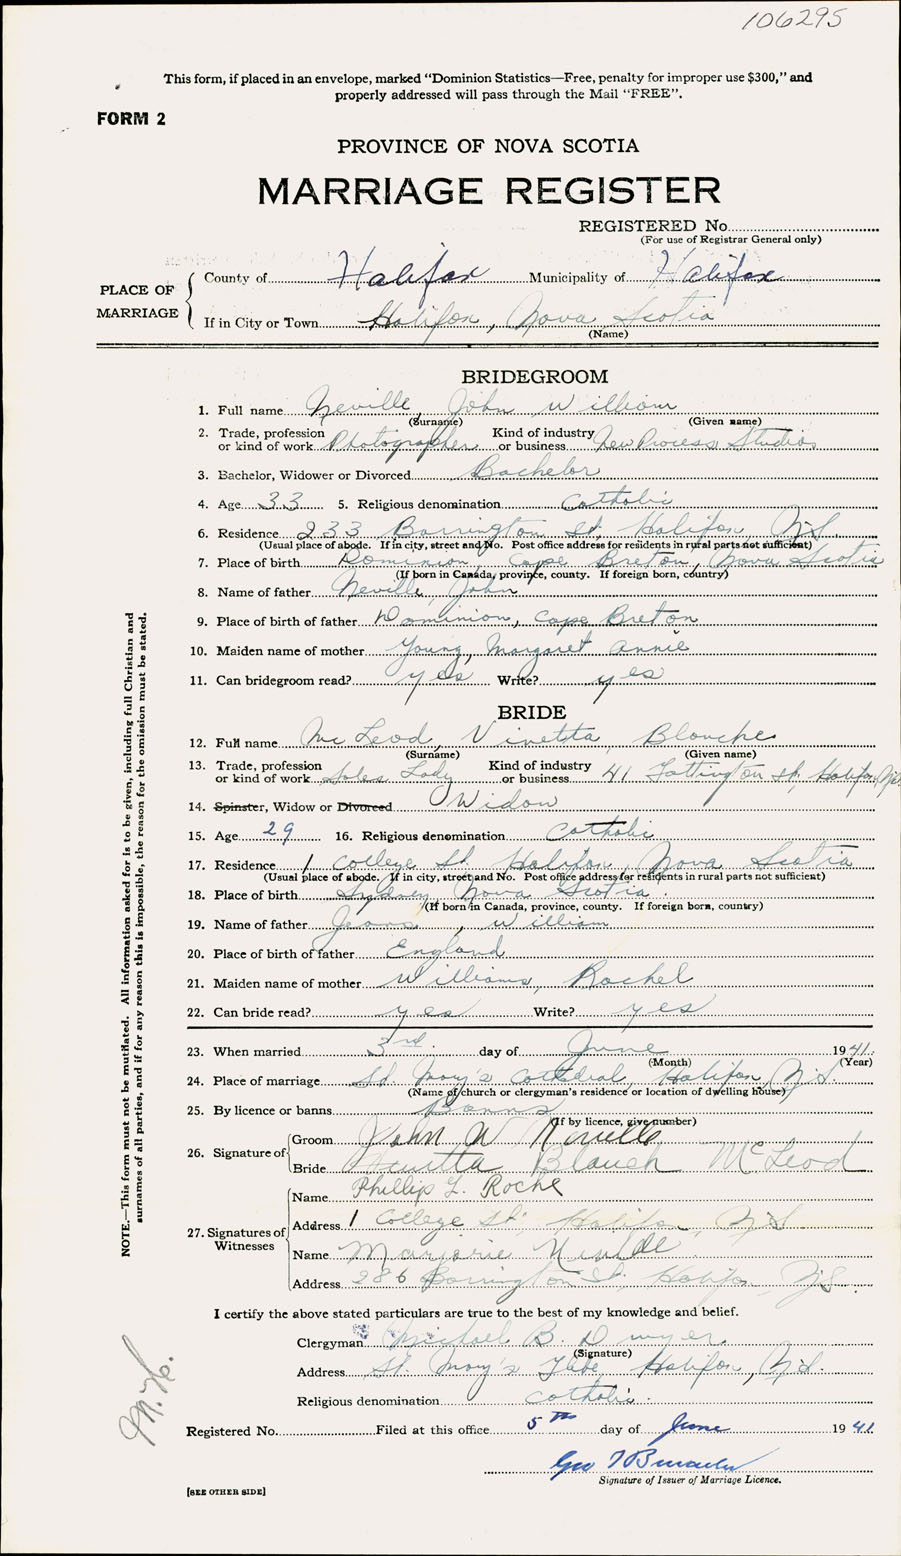 106295
This form, if placed in an envelope, marked “Dominion Statistics—Free, penalty for improper use $300,” and
properly addressed will pass through the Mail “FREE”.
FORM 2
PROVINCE OF NOVA SCOTIA
MARRIAGE REGISTER
REGISTERED No.
(For use of Registrar General only)
PLACE OF MARRIAGE
County of Halifax Municipality of Halifax
If in City or Town Halifax, Nova Scotia
(Name)
BRIDEGROOM
1. Full name Neville, John William
(Surname) (Given name)
2. Trade, profession or kind of work Photographer Kind of industry or business New Process Studios
3. Bachelor, Widower or Divorced Bachelor
4. Age 33 5. Religious denomination Catholic
6. Residence 233 Barrington St. Halifax, N.S.
(Usual place of abode. If in city, street and No. Post office address for residents in rural parts not sufficient)
7. Place of birth Dominion, Cape Breton, Nova Scotia
(If born in Canada, province, county. If foreign born, country)
8. Name of father Neville, John
9. Place of birth of father Dominion, Cape Breton
10. Maiden name of mother Young, Margaret Annie
11. Can bridegroom read? yes Write? yes
BRIDE
12. Full name McLeod, Vinetta Blanche
(Surname) (Given name)
13. Trade, profession or kind of work Sales Lady Kind of industry or business 41 St, Halifax, N.S.
14. Spinster, Widow or Divorced Widow
15. Age 29 16. Religious denomination Catholic
17. Residence 1 College St. Halifax, Nova Scotia
(Usual place of abode. If in city, street and No. Post office address for residents in rural parts not sufficient)
18. Place of birth Sydney, Nova Scotia.
(If born in Canada, province, county. If foreign born, country)
19. Name of father Jeans, William
20. Place of birth of father England
21. Maiden name of mother Williams, Rachel
22. Can bride read? yes Write? yes
23. When married 3rd. day of June 1941.
(Month) (Year)
24. Place of marriage St. Mary's Cathedral, Halifax, N.S.
(Name of church or clergyman's residence or location of dwelling house)
25. By licence or banns Banns
(If by licence, give number)
26. Signature of
Groom John W Neville
Bride Blanch McLeod
27. Signatures of Witnesses
Name Phillip L. Roche
Address 1 College St., Halifax, N.S.
Name Marjorie Neville
Address 286 Barrington St., Halifax, N.S.
I certify the above stated particulars are true to the best of my knowledge and belief.
Clergyman Michael B. Dwyer
(Signature)
Address St. Mary's Glebe Halifax, N.S.
Religious denomination Catholic.
Registered No. Filed at this office 5th day of June 1941
Geo
Signature of Issuer of Marriage Licence.
[SEE OTHER SIDE]
NOTE.—This form must not be mutilated. All information asked for is to be given, including full Christian and
surnames of all parties, and if for any reason this is impossible, the reason for the omission must be stated.